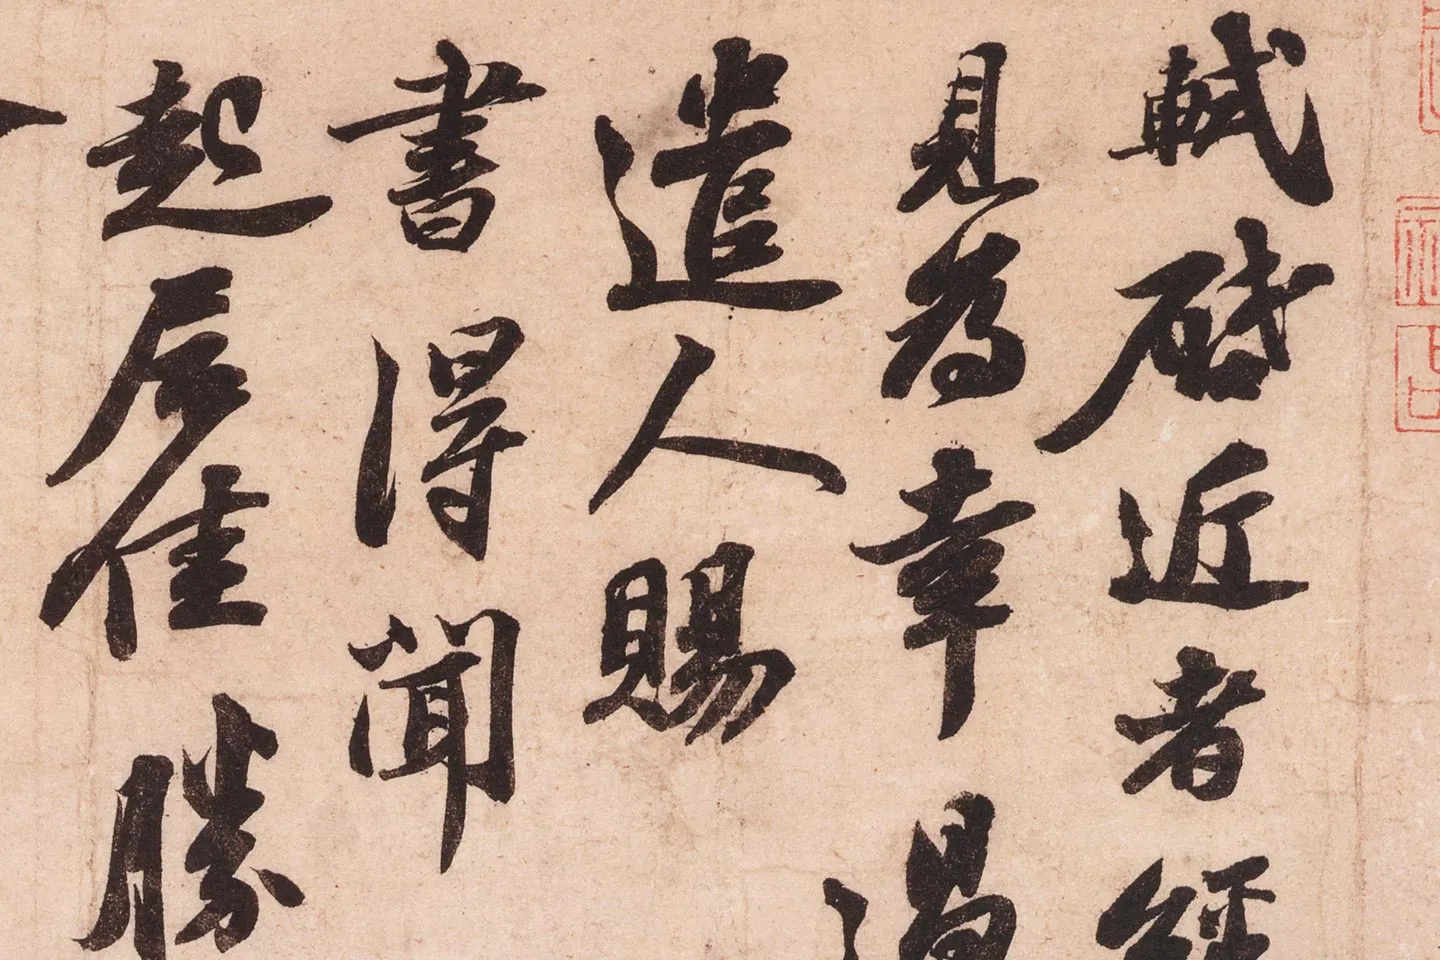 軾啓近者經
見為幸過
遣人賜
書得聞
起居佳勝